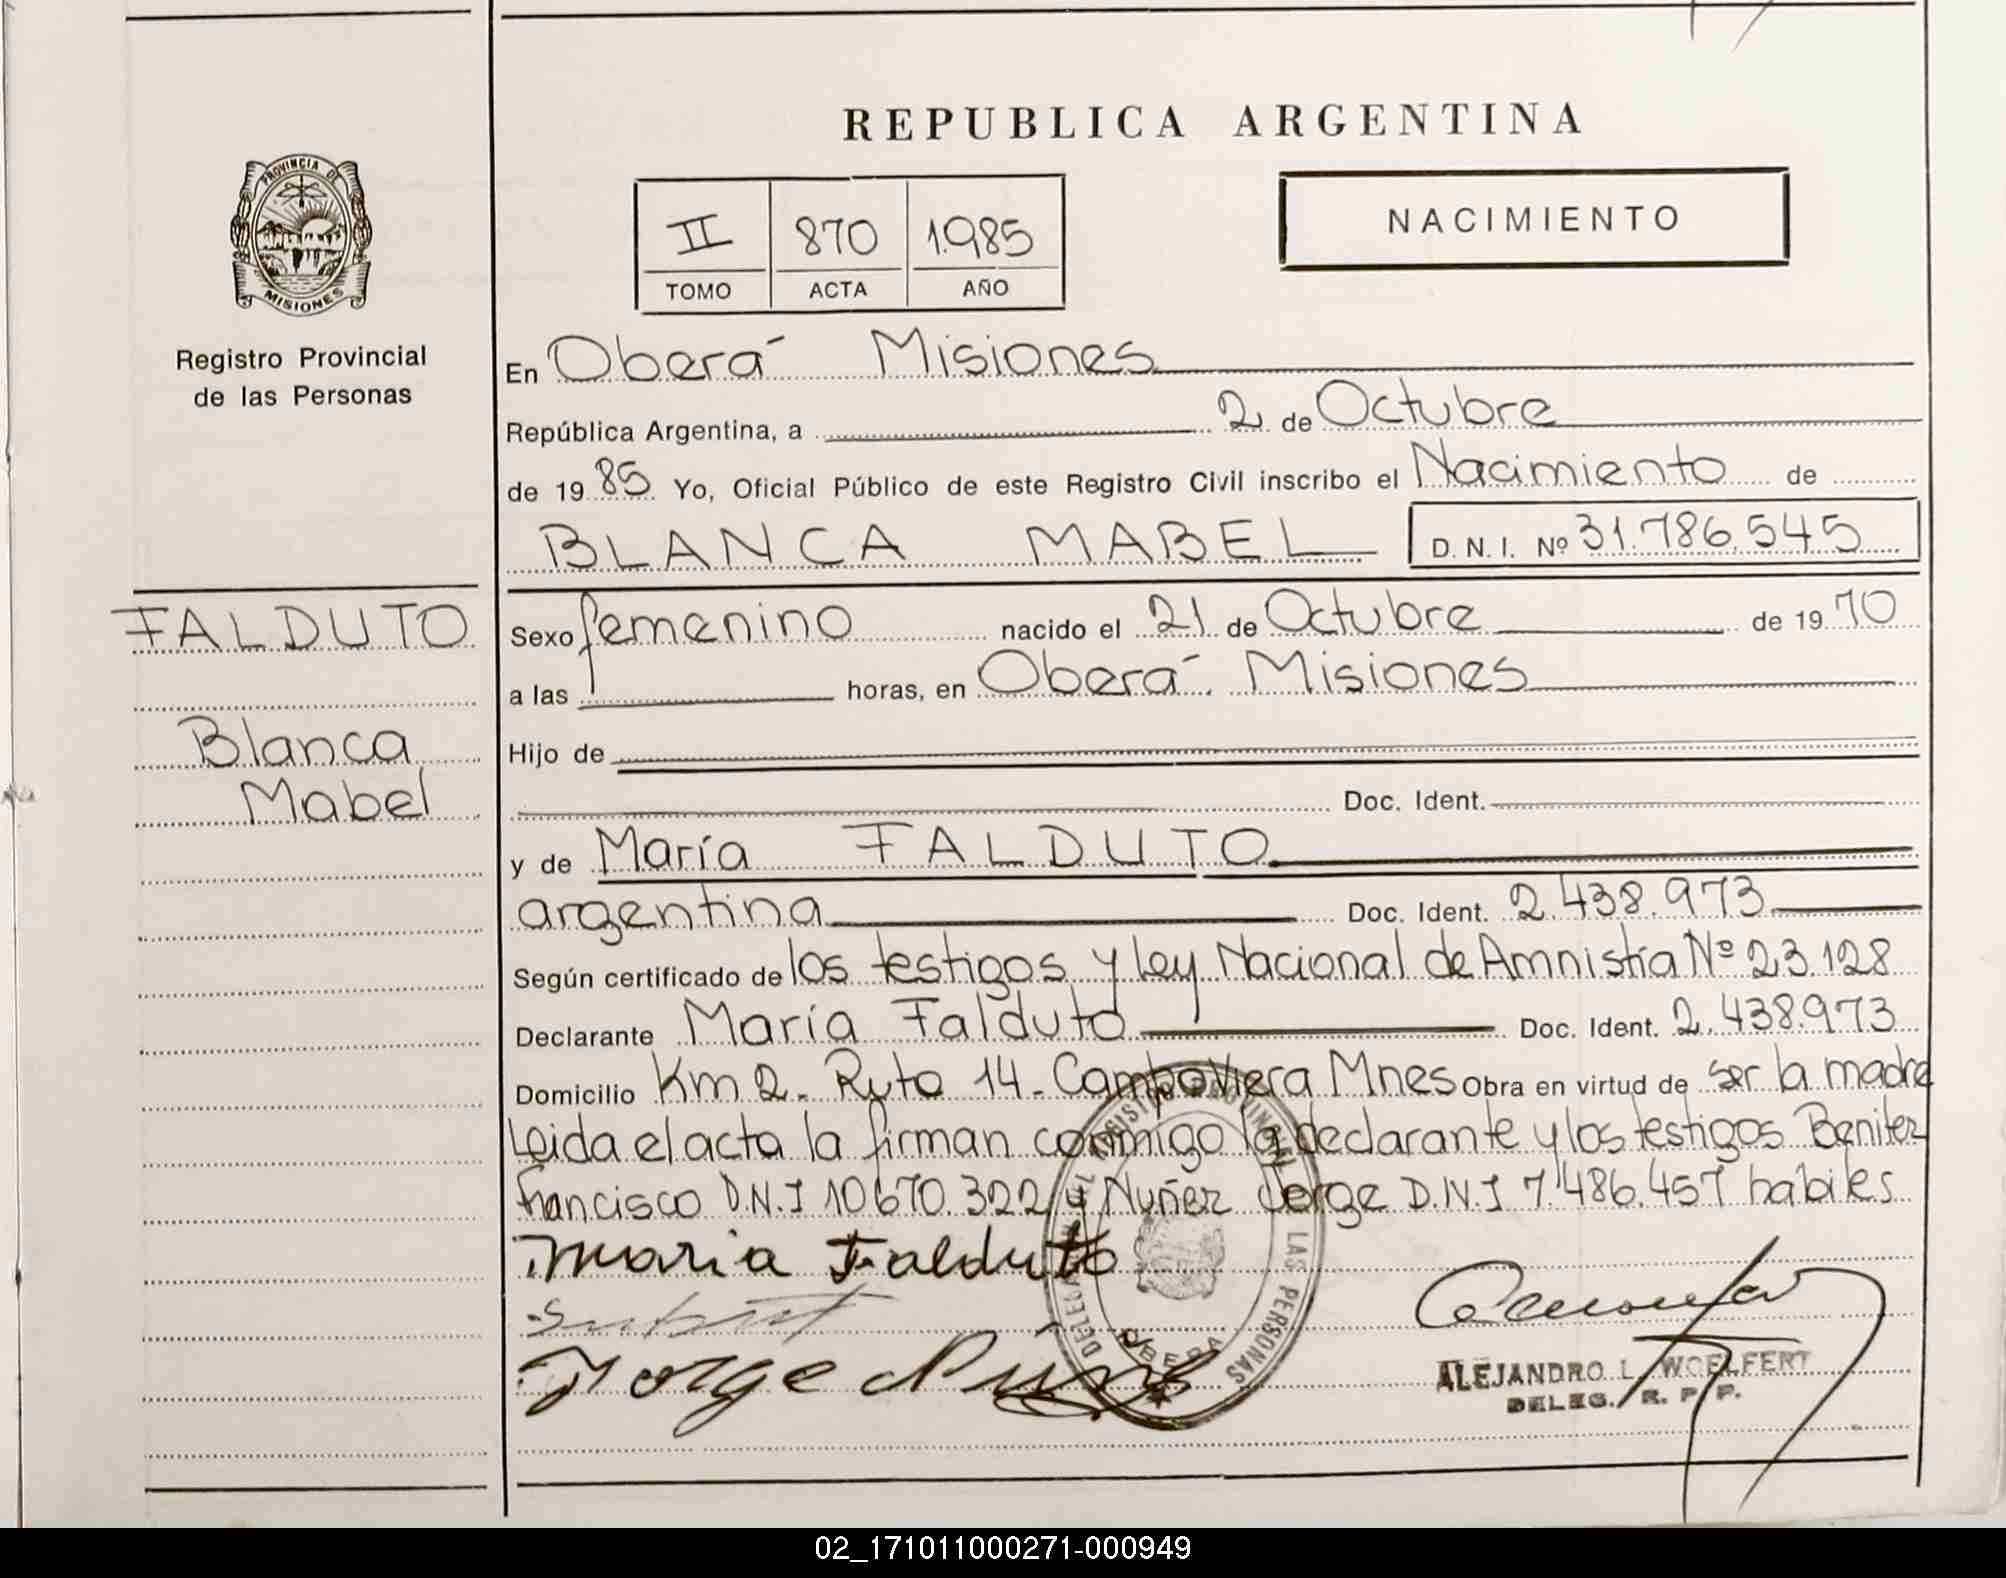 REPUBLICA ARGENTINA
PROVINCIA DE
MISIONES
Registro Provincial
de las Personas
II 870 1.985
TOMO ACTA AÑO
NACIMIENTO
En Oberá Misiones
República Argentina, a 2 de Octubre
de 1985 Yo, Oficial Público de este Registro Civil inscribo el Nacimiento de
BLANCA MABEL D.N.I. Nº 31.786.545
FALDUTO
Blanca
Mabel
Sexo femenino nacido el 21 de Octubre de 1970
a las horas, en Oberá Misiones
Hijo de
Doc. Ident.
y de María FALDUTO
argentina Doc. Ident. 2.438.973
Según certificado de los testigos y ley Nacional de Amnistía Nº 23.128
Declarante María Falduto Doc. Ident. 2.438.973
Domicilio Km 2. Ruta 14 - Campo Viera Mnes Obra en virtud de ser la madre
Leida el acta la firman conmigo la declarante y los testigos Benitez
francisco D.N.I 10670.322 y Nuñez Jorge D.N.I 7.486.457 habiles
maria Falduto
Jorge
REGISTRO PROVINCIAL DE LAS PERSONAS
OBERA
ALEJANDRO L. WOELFERT
DELEG. R. P. P.
02_171011000271-000949